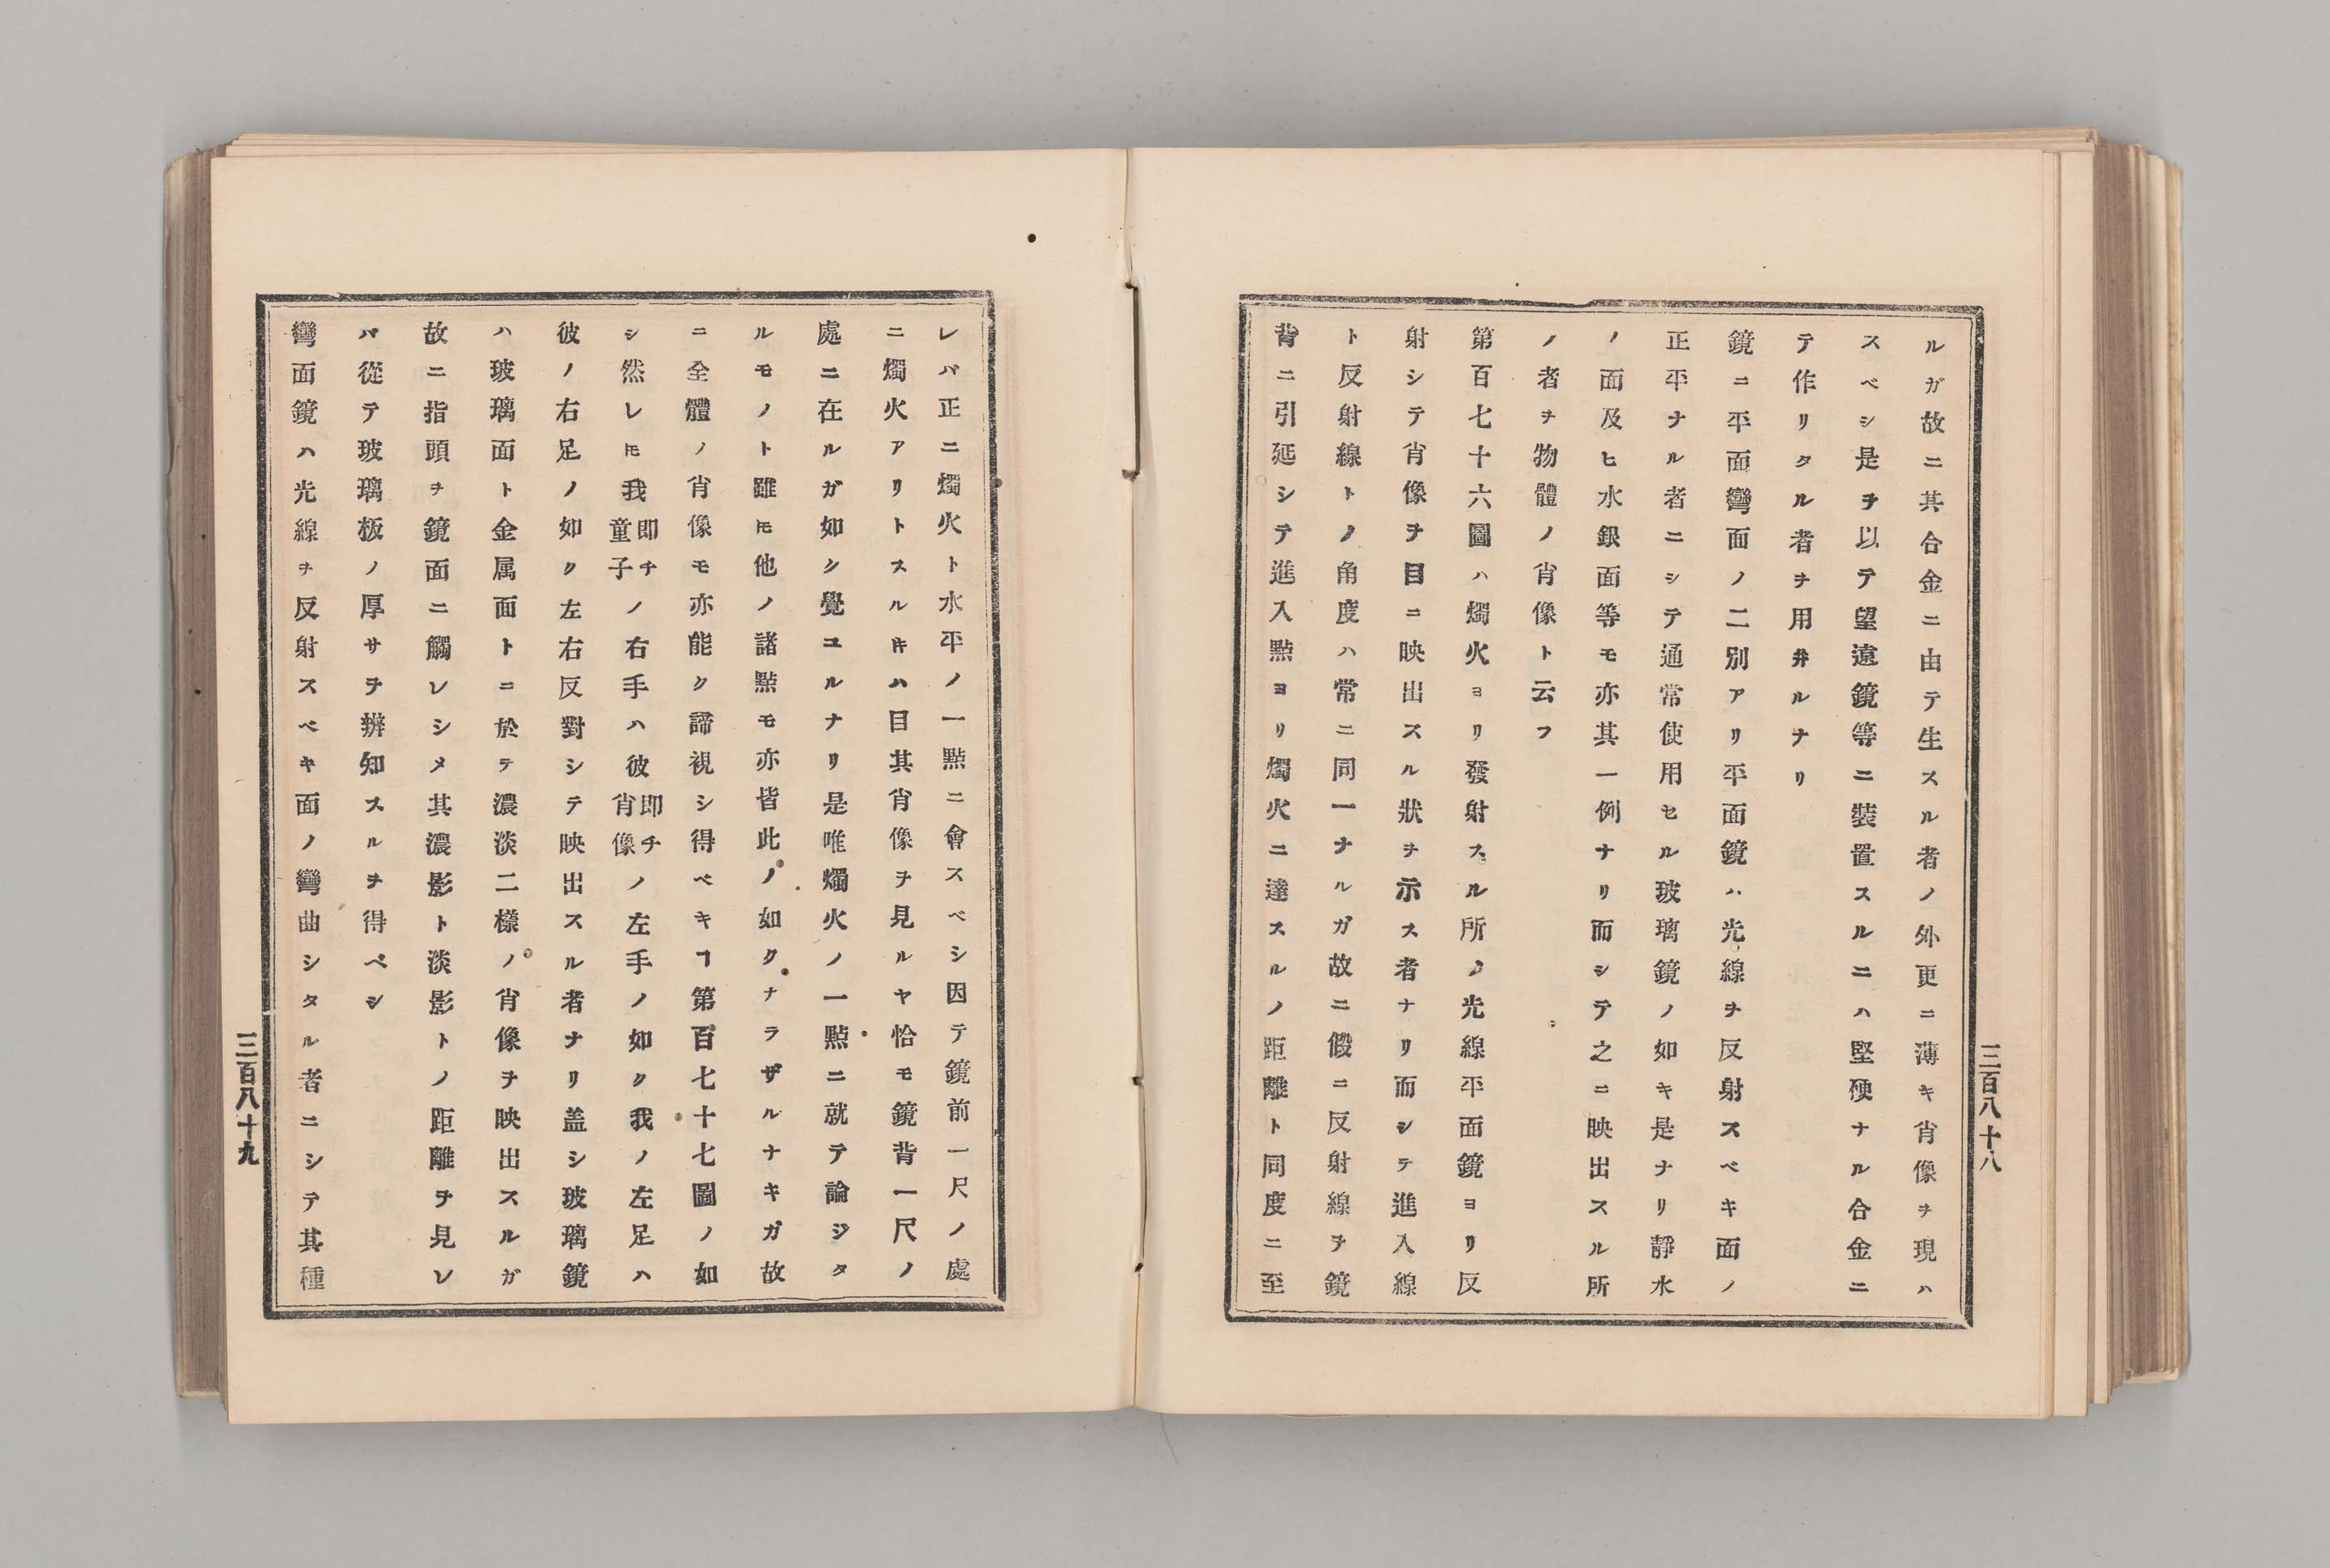 ルガ故ニ其合金ニ由テ生スル者ノ外更ニ薄キ肖像ヲ現ハ
スベシ是ヲ以テ望遠鏡等ニ裝置スルニハ堅硬ナル合金ニ
テ作リタル者ヲ用弁ルナリ
鏡ニ平面彎面ノ二別アリ平面鏡ハ光線ヲ反射スベキ面ノ
正平ナル者ニシテ通常使用セル玻璃鏡ノ如キ是ナリ靜水
ノ面及ヒ水銀面等モ亦其一例ナリ而シテ之ニ映出スル所
ノ者ヲ物體ノ肖像ト云フ
第百七十六圖ハ燭火ヨリ發射スル所ノ光線平面鏡ヨリ反
射シテ肖像ヲ目ニ映出スル狀ヲ示ス者ナリ而シテ進入線
ト反射線トノ角度ハ常ニ同一ナルガ故ニ假ニ反射線ヲ鏡
背ニ引延シテ進入點ヨリ燭火ニ達スルノ距離ト同度ニ至
三百八十八
レバ正ニ燭火ト水平ノ一點ニ會スベシ因テ鏡前一尺ノ處
ニ燭火アリトスルヰハ目其肖像ヲ見ルヤ恰モ鏡背一尺ノ
處ニ在ルガ如シ覺ユルナリ是唯燭火ノ一點ニ就テ論ジタ
ルモノト雖𪜈他ノ諸點モ亦皆此ノ如クナラザルナキガ故
ニ全體ノ肖像モ亦能ク諦視シ得ベキヿ第百七十七圖ノ如
シ然レ𪜈我即チ童子ノ右手ハ彼即チ肖像ノ左手ノ如ク我ノ左足ハ
彼ノ右足ノ如ク左右反對シテ映出スル者ナリ盖シ玻璃鏡
ハ玻璃面ト金属面トニ於テ濃淡二樣ノ肖像ヲ映出スルガ
故ニ指頭ヲ鏡面ニ觸レシメ其濃影ト淡影トノ距離ヲ見レ
バ從テ玻璃板ノ厚サヲ辨知スルヲ得ベシ
彎面鏡ハ光線ヲ反射スベキ面ノ彎曲シタル者ニシテ其種
三百八十九